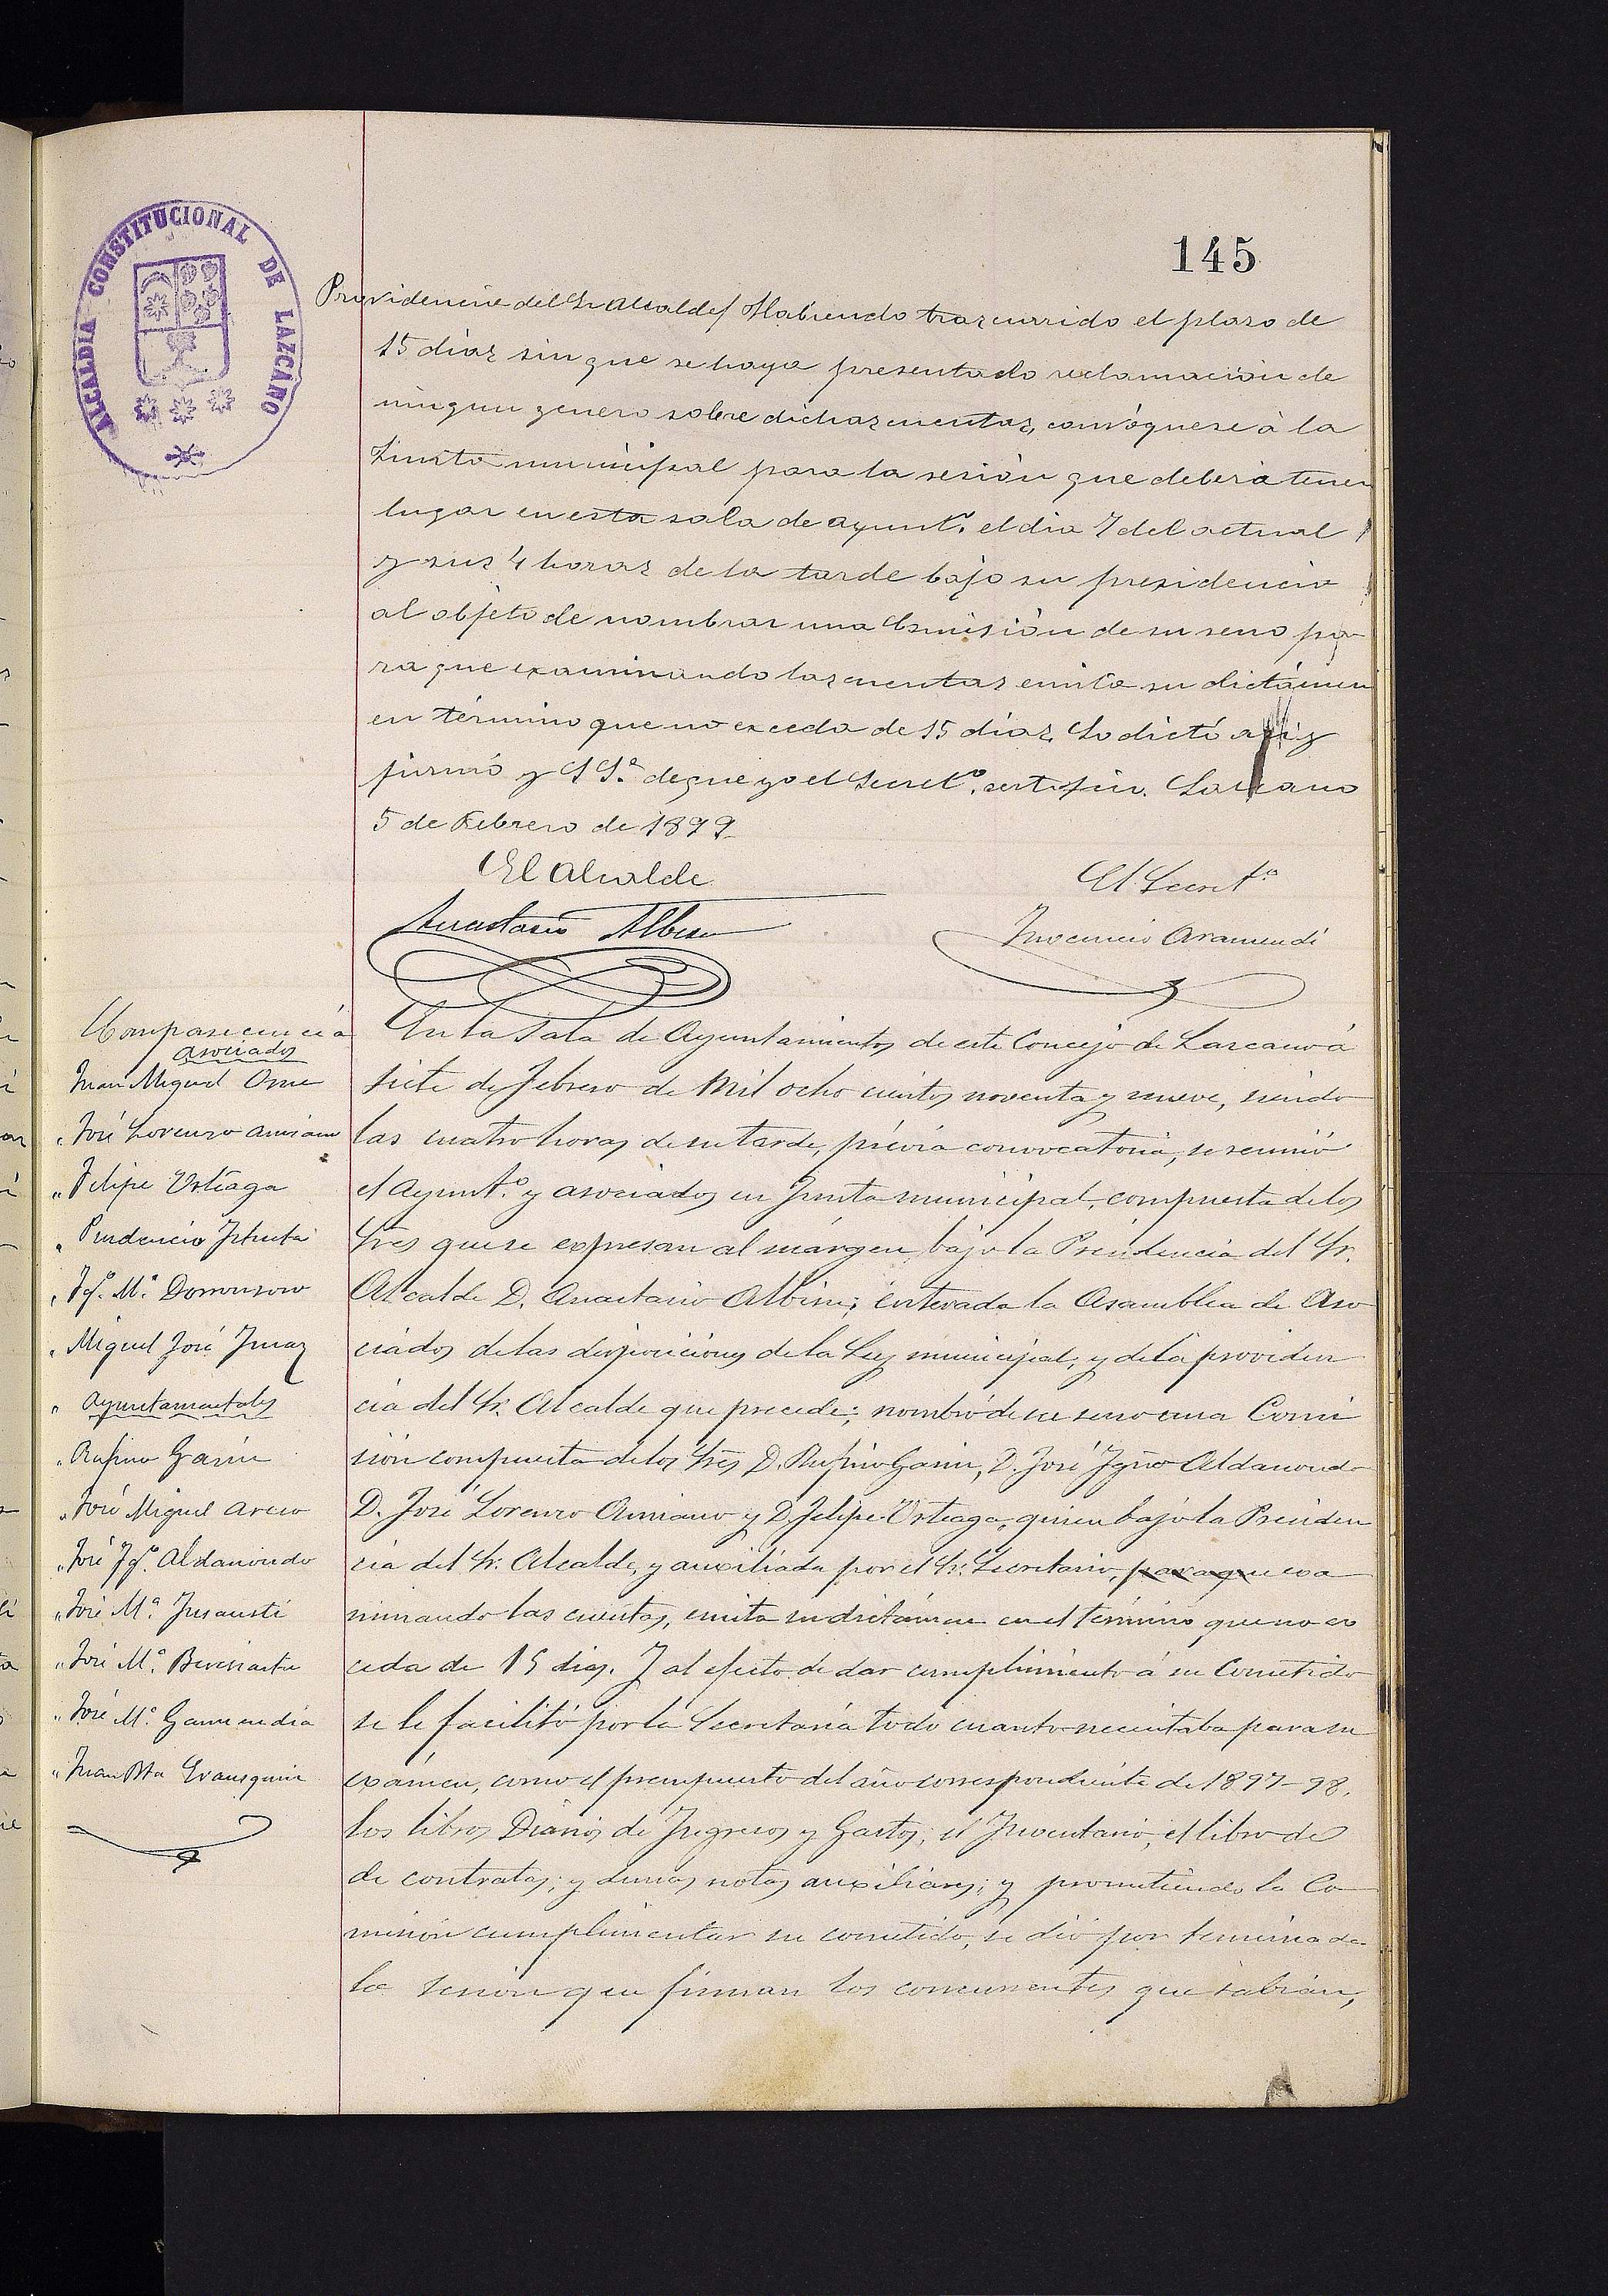 145
ALCALDIA CONSTITUCIONAL DE LAZCANO
Providencia del Sr Alcalde/ Habiendo trascurrido el plaso de
15 dias sin que se haya presentado reclamación de
ningun genero sobre dichas cuentas, convóquese à la
Junta municipal para la sesión que deberà tener
lugar en esta sala de ayuntº. el dia 7 del actual
y sus 4 horas de la tarde bajo su presidencia
al objeto de nombrar una Comisión de su seno pa-
ra que examinando las cuentas emita su dictámen
en término que no exceda de 15 dias. Lo dictó asi y
firmó y S Sª. de que yo el Secretº. certifico. Lazcano
5 de Febrero de 1899.
El Alcalde
El Secretº
Anastasio Albisu
Inocencio Aramendi
Comparecencia
asociados
Juan Miguel
" José Lorenzo Amiano
" Felipe Urteaga
" Prudencio
" Igº. Mª. Dorronsoro
" Miguel José
" Ayuntamentales
" Rufino Garin
" José Miguel
" José Igº. Aldanondo
" José Mª. Insausti
" José Mª.
" José Mª. Garmendia
" Juan Bta Erausquin
En la Sala de Ayuntamientos de este Concejo de Lazcano á
siete de febrero de Mil ocho cientos noventa y nueve, siendo
las cuatro horas de su tarde, prévia convocatoria, se reunió
el Ayuntº. y asociados en Junta municipal, compuesta de los
Sres que se expresan al márgen, bajo la Presidencia del Sr.
Alcalde D. Anastasio Albisu; enterada la Asamblea de Aso
ciados de las disposiciones de la Ley municipal, y de la providen
cia del Sr. Alcalde que precede; nombró de su seno una Comi
sión compuesta de los Sres D. Rufino Garin, D. José Igno Aldanondo
D. José Lorenzo Amiano y D. Felipe Urteaga, quien bajo la Presiden
cia del Sr. Alcalde, y auxiliada por el Sr. Secretario, para que exa
minando las cuentas, emita su dictámen en el término que no ex
ceda de 15 dias. Y al efecto de dar cumplimiento á su Cometido
se le facilitó por la Secretaría todo cuanto necesitaba para su
exámen, como el presupuesto del año correspondiente de 1897-98,
los libros Diarios de Ingresos y Gastos; el Inventario, el libro de
de contratas; y demas notas auxiliares; y prometiendo la Co
misión cumplimentar su cometido, se dió por terminada
la sesión que firman los concurrentes que sabían,